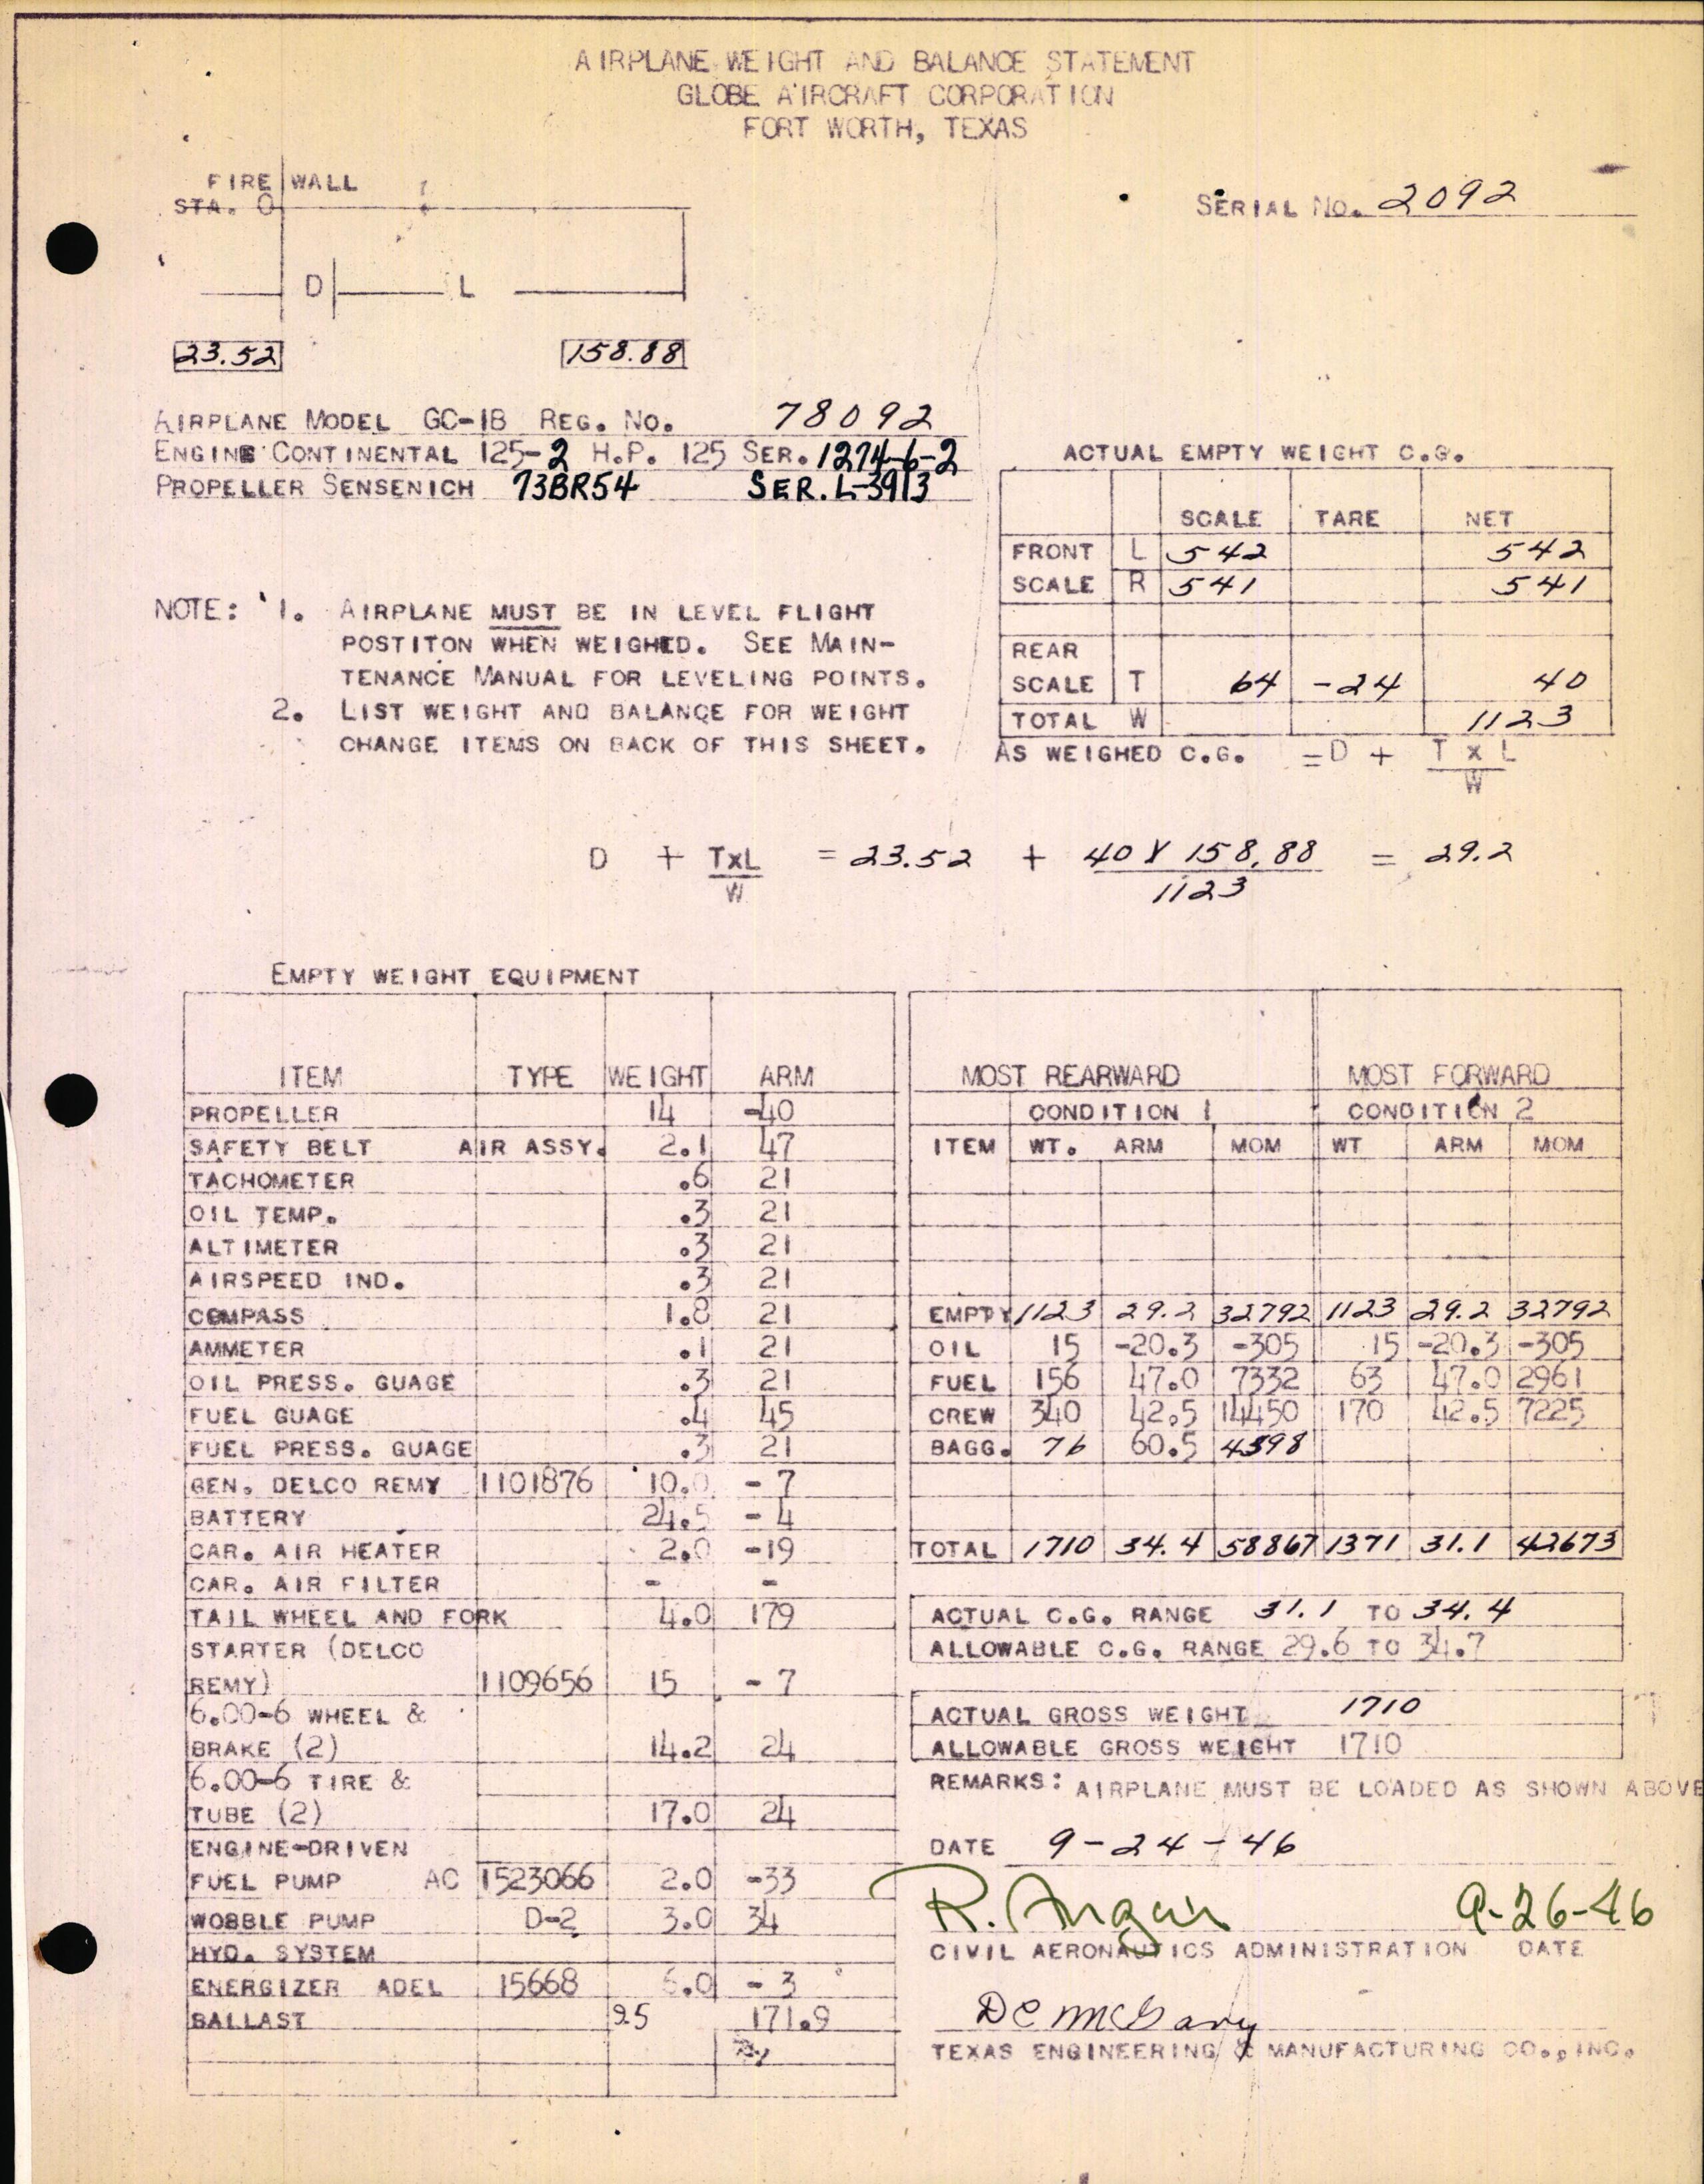 AIRPLANE WEIGHT AND BALANCE STATEMENT
GLOBE AIRCRAFT CORPORATION
FORT WORTH, TEXAS
FIRE WALL
STA. 0
SERIAL NO. 2092
D L
23.52 158.88
AIRPLANE MODEL GC-1B REG. NO. 78092
ENGINE CONTINENTAL 125-2 H.P. 125 SER. 1274-6-2
PROPELLER SENSENICH 73BR54 SER. L-3913
ACTUAL EMPTY WEIGHT C.G.
SCALE TARE NET
FRONT L 542 542
SCALE R 541 541
REAR
SCALE T 64 -24 40
TOTAL W 1123
AS WEIGHED C.G. = D + T x L
W
NOTE: 1. AIRPLANE MUST BE IN LEVEL FLIGHT
POSTITON WHEN WEIGHED. SEE MAIN-
TENANCE MANUAL FOR LEVELING POINTS.
2. LIST WEIGHT AND BALANCE FOR WEIGHT
CHANGE ITEMS ON BACK OF THIS SHEET.
D + TxL = 23.52 + 40 X 158.88 = 29.2
W 1123
EMPTY WEIGHT EQUIPMENT
ITEM TYPE WEIGHT ARM
PROPELLER 14 -40
SAFETY BELT AIR ASSY. 2.1 47
TACHOMETER .6 21
OIL TEMP. .3 21
ALTIMETER .3 21
AIRSPEED IND. .3 21
COMPASS 1.8 21
AMMETER .1 21
OIL PRESS. GUAGE .3 21
FUEL GUAGE .4 45
FUEL PRESS. GUAGE .3 21
GEN. DELCO REMY 1101876 10.0 - 7
BATTERY 24.5 - 4
CAR. AIR HEATER 2.0 -19
CAR. AIR FILTER - -
TAIL WHEEL AND FORK 4.0 179
STARTER (DELCO
REMY) 1109656 15 - 7
6.00-6 WHEEL &
BRAKE (2) 14.2 24
6.00-6 TIRE &
TUBE (2) 17.0 24
ENGINE-DRIVEN
FUEL PUMP AC 1523066 2.0 -33
WOBBLE PUMP D-2 3.0 34
HYD. SYSTEM
ENERGIZER ADEL 15668 6.0 - 3
BALLAST 171.9
MOST REARWARD MOST FORWARD
CONDITION 1 CONDITION 2
ITEM WT. ARM MOM WT ARM MOM
EMPTY 1123 29.2 32792 1123 29.2 32792
OIL 15 -20.3 -305 15 -20.3 -305
FUEL 156 47.0 7332 63 47.0 2961
CREW 340 42.5 14450 170 42.5 7225
BAGG. 76 60.5 4598
TOTAL 1710 34.4 58867 1371 31.1 42673
ACTUAL C.G. RANGE 31.1 TO 34.4
ALLOWABLE C.G. RANGE 29.6 TO 34.7
ACTUAL GROSS WEIGHT 1710
ALLOWABLE GROSS WEIGHT 1710
REMARKS: AIRPLANE MUST BE LOADED AS SHOWN ABOVE
DATE 9-24-46
R. 9-26-46
CIVIL AERONAUTICS ADMINISTRATION DATE
TEXAS ENGINEERING & MANUFACTURING CO., INC.